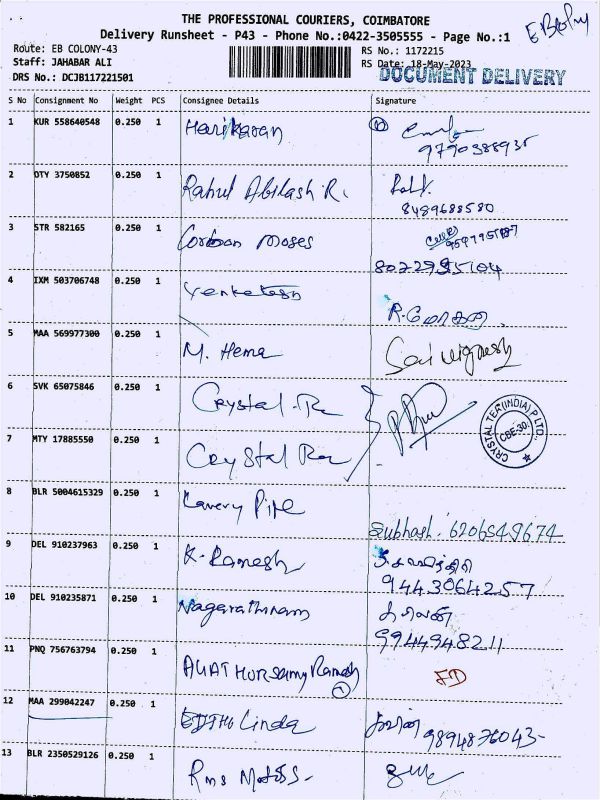 THE PROFESSIONAL COURIERS, COIMBATORE
Delivery Runsheet - P43 - Phone No.:0422-3505555 - Page No.:1
Route: EB COLONY-43
RS No.: 1172215
Staff: JAHABAR ALI
RS Date: 18-May-2023
DRS No.: DCJB117221501
DOCUMENT DELIVERY
S No Consignment No Weight PCS Consignee Details Signature
1 KUR 558640548 0.250 1 Harikaran
9790388935
2 OTY 3750852 0.250 1 Rahul Abilash R.
8489688580
3 STR 582165 0.250 1 Cordoan Moses
4 IXM 503706748 0.250 1 Venkatesh
5 MAA 569977300 0.250 1 M. Hema Sai Vignesh
6 SVK 65075846 0.250 1 Crystal
CRYSTAL TER(INDIA) P LTD. CBE-30.
7 MTY 17885550 0.250 1 Crystal
8 BLR 5004615329 0.250 1 Kavery Pipe
Subhash. 6206549674
9 DEL 910237963 0.250 1 K. Ramesh
9443064257
10 DEL 910235871 0.250 1 Nagarathinam
9944948211
11 PNQ 756763794 0.250 1 Ramesh FD
12 MAA 299042247 0.250 1 Linda
9894876043-
13 BLR 2350529126 0.250 1 Rms